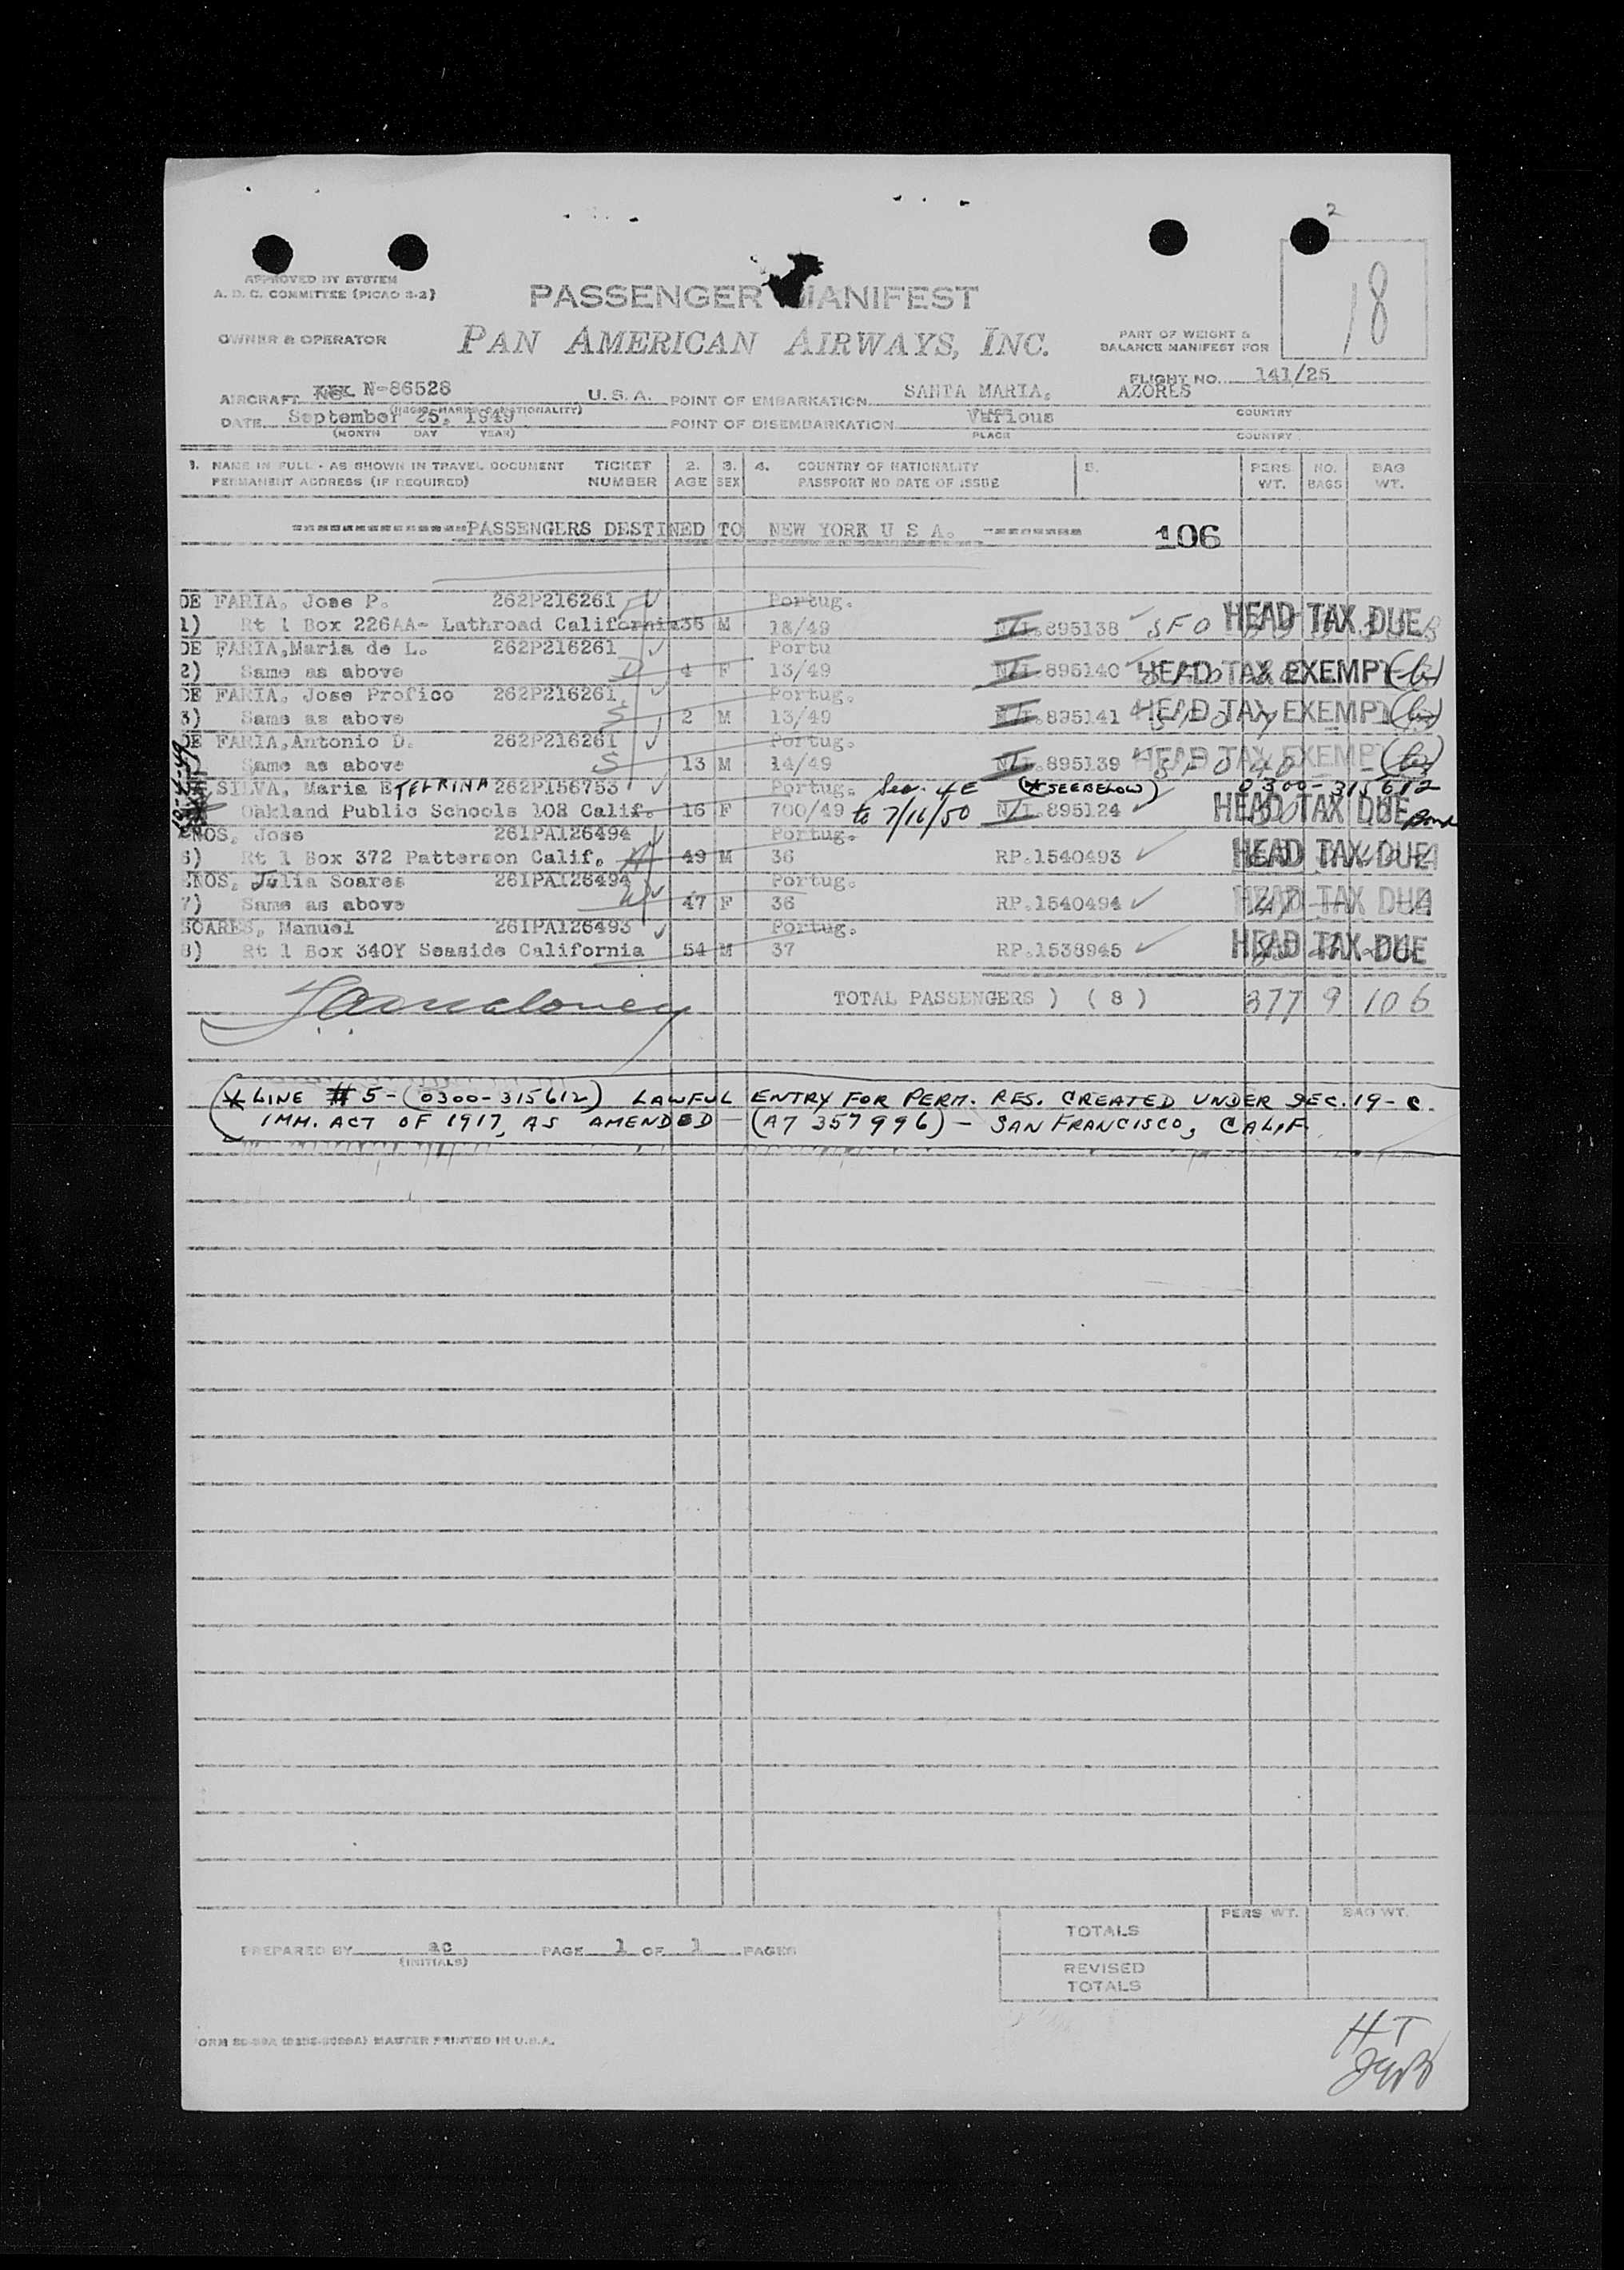 2
18
APPROVED BY SYSTEM
A. D. C. COMMITTEE (PICAO 3-2)
PASSENGER MANIFEST
OWNER & OPERATOR
PAN AMERICAN AIRWAYS, INC.
PART OF WEIGHT &
BALANCE MANIFEST FOR
FLIGHT NO. 141/25
AIRCRAFT N-86528 U. S. A. POINT OF EMBARKATION SANTA MARIA, AZORES
(REGIS. MARKS & NATIONALITY) PLACE COUNTRY
DATE September 25, 1949 POINT OF DISEMBARKATION Various
(MONTH DAY YEAR) PLACE COUNTRY
1. NAME IN FULL - AS SHOWN IN TRAVEL DOCUMENT TICKET 2. 3. 4. COUNTRY OF NATIONALITY 5. PERS NO. BAG
PERMANENT ADDRESS (IF REQUIRED) NUMBER AGE SEX PASSPORT NO DATE OF ISSUE WT. BAGS WT.
PASSENGERS DESTINED TO NEW YORK U S A. 106
DE FARIA, Jose P. 262P216261 Portug.
1) Rt 1 Box 226AA- Lathroad California 36 M 18/49 895138 SFO HEAD TAX DUE
DE FARIA, Maria de L. 262P216261 Portu
2) Same as above D 4 F 13/49 895140 HEAD TAX EXEMPT
DE FARIA, Jose Profico 262P216261 Portug.
3) Same as above S 2 M 13/49 895141 HEAD TAX EXEMPT
DE FARIA, Antonio D. 262P216261 Portug.
Same as above S 13 M 14/49 895139 HEAD TAX EXEMPT
SILVA, Maria ETELRINA 262P156753 Portug. Sec. 4E (*SEE BELOW) 0300-315612
Oakland Public Schools 108 Calif. 16 F 700/49 to 7/16/50 895124 HEAD TAX DUE Bond
ENOS, Jose 261PA126494 Portug.
6) Rt 1 Box 372 Patterson Calif. 49 M 36 RP.1540493 HEAD TAX DUE
ENOS, Julia Soares 261PA126494 Portug.
7) Same as above W 47 F 36 RP.1540494 HEAD TAX DUE
SOARES, Manuel 261PA126493 Portug.
8) Rt 1 Box 340Y Seaside California 54 M 37 RP.1538945 HEAD TAX DUE
TOTAL PASSENGERS ) ( 8 ) 377 9 106
(* LINE # 5 - (0300-315612) LAWFUL ENTRY FOR PERM. RES. CREATED UNDER SEC. 19-C.
IMM. ACT OF 1917, AS AMENDED - (A7 357 996) - SAN FRANCISCO, CALIF.
TOTALS PERS WT. BAG WT.
PREPARED BY ac PAGE 1 OF 1 PAGES
(INITIALS)
REVISED
TOTALS
MASTER PRINTED IN U.S.A.
HT